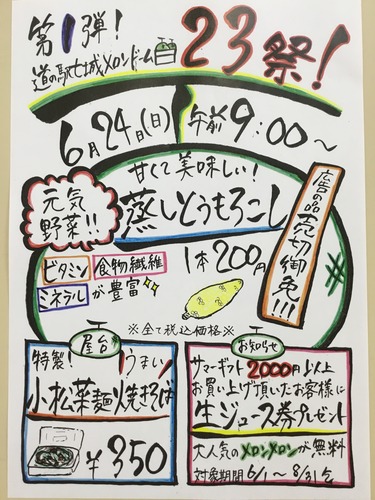 第1弾!
道の駅七城メロンドーム
23祭!
6月24日(日) 午前9:00~
甘くて美味しい!
元気
野菜!!
蒸しとうもろこし
1本200円
ビタミン 食物繊維
ミネラルが豊富
広告の品売切御免!!!
※全て税込価格※
屋台
特製! うまい
小松菜麺焼きそば
¥350
お知らせ
サマーギフト2000円以上
お買い上げ頂いたお客様に
生ジュース券プレゼント
大人気のメロンメロンが無料
対象期間 6/1~8/31迄